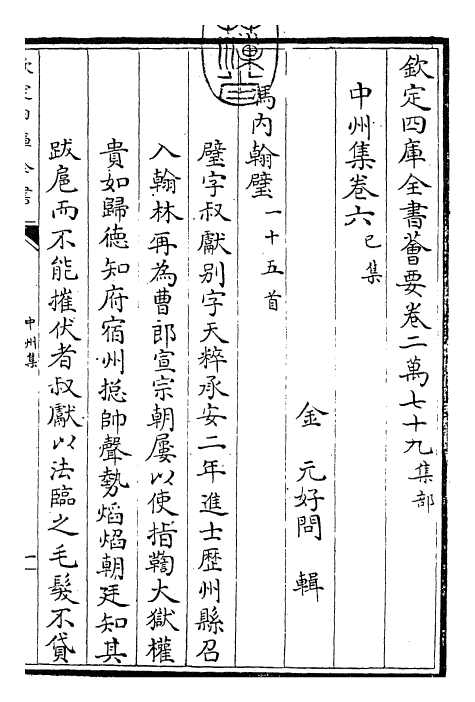 欽定四庫全書薈要卷二萬七十九集部
中州集卷六 已集
金 元好問 輯
馮內翰璧一十五首
璧字叔獻别字天粹承安二年進士歷州縣召
入翰林再為曹郎宣宗朝屢以使指鞫大獄權
貴如歸德知府宿州捴帥聲勢焰焰朝廷知其
跋扈而不能摧伏者叔獻以法臨之毛髮不貸
中州集
一